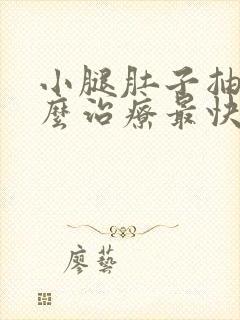 小腿肚子抽
麼治療最快
廖藝